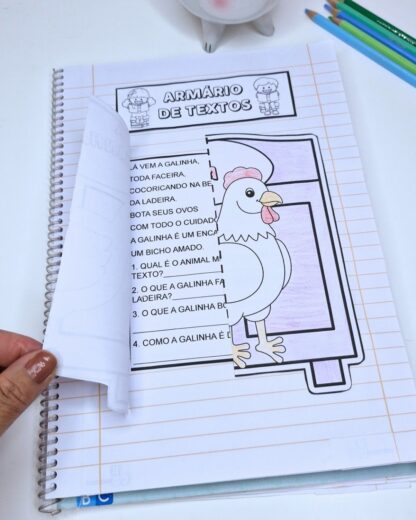 ARMÁRIO
DE TEXTOS
LÁ VEM A GALINHA,
TODA FACEIRA,
COCORICANDO NA BE
DA LADEIRA.
BOTA SEUS OVOS
COM TODO O CUIDAD
A GALINHA É UM ENCA
UM BICHO AMADO.
1. QUAL É O ANIMAL M
TEXTO?
2. O QUE A GALINHA FA
LADEIRA?
3. O QUE A GALINHA B
4. COMO A GALINHA É D